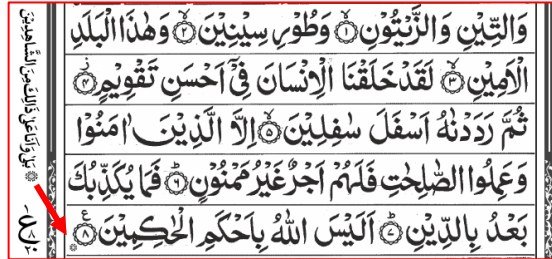 وَالتِّيْنِ وَالزَّيْتُوْنِ ۙ‏﴿۱﴾ وَطُوْرِ سِيْنِيْنَ ۙ‏﴿۲﴾ وَهٰذَا الْبَلَدِ
الْاَمِيْنِ ۙ‏﴿۳﴾ لَقَدْ خَلَقْنَا الْاِنْسَانَ فِيْۤ اَحْسَنِ تَقْوِيْمٍ ۫‏﴿۴﴾
ثُمَّ رَدَدْنٰهُ اَسْفَلَ سٰفِلِيْنَ ۙ‏﴿۵﴾ اِلَّا الَّذِيْنَ اٰمَنُوْا
وَعَمِلُوا الصّٰلِحٰتِ فَلَهُمْ اَجْرٌ غَيْرُ مَمْنُوْنٍ ؕ‏﴿۶﴾ فَمَا يُكَذِّبُكَ
بَعْدُ بِالدِّيْنِ ؕ‏﴿۷﴾ اَلَيْسَ اللّٰهُ بِاَحْكَمِ الْحٰكِمِيْنَ ‏﴿۸﴾ ع
بَلٰى وَاَنَا عَلٰى ذٰلِكَ مِنَ الشّٰاهِدِيْنَ